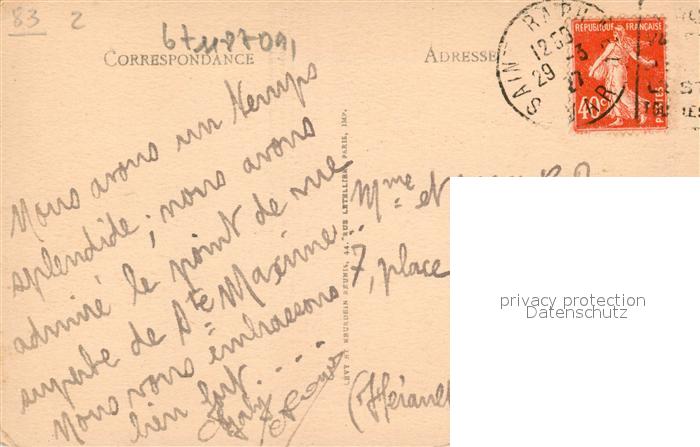 83 2
67118709
CORRESPONDANCE
ADRESSE
SAINT RAPH
12 30
29 - 3
27
VAR
REPUBLIQUE FRANÇAISE
40c
POSTES
Nous avons un temps
splendide ; nous avons
admiré le point de vue
superbe de Ste Maxime...
Nous vous embrassons
bien fort. ...
LEVY ET NEURDEIN REUNIS, 44, RUE LETELLIER, PARIS, IMP.
Mme et
7, place
(Hérault
privacy protection
Datenschutz